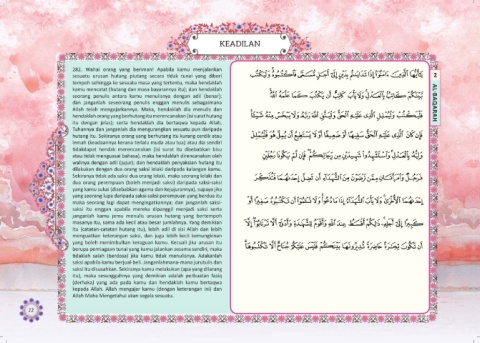 KEADILAN
282. Wahai orang yang beriman! Apabila kamu menjalankan
sesuatu urusan hutang piutang secara tidak tunai yang diberi
tempoh sehingga ke sesuatu masa yang tertentu, maka hendaklah
kamu mencatat (hutang dan masa bayarannya itu); dan hendaklah
seorang penulis antara kamu menulisnya dengan adil (benar);
dan janganlah seseorang penulis enggan menulis sebagaimana
Allah telah mengajarkannya. Maka, hendaklah dia menulis dan
hendaklah orang yang berhutang itu merencanakan (isi surat hutang
itu dengan jelas); serta hendaklah dia bertaqwa kepada Allah,
Tuhannya dan janganlah dia mengurangkan sesuatu pun daripada
hutang itu. Sekiranya orang yang berhutang itu kurang cerdik atau
lemah (keadaannya kerana terlalu muda atau tua) atau dia sendiri
tidakdapat hendak merencanakan (isi surat itu disebabkan bisu
atau tidak menguasai bahasa), maka hendaklah direncanakan oleh
walinya dengan adil (jujur); dan hendaklah penyaksian hutang itu
dilakukan dengan dua orang saksi lelaki daripada kalangan kamu.
Sekiranya tidak ada saksi dua orang lelaki, maka seorang lelaki dan
dua orang perempuan (boleh menjadi saksi) daripada saksi-saksi
yang kamu sukai (disebabkan agama dan kejujurannya), supaya jika
yang seorang lupa daripada saksi-saksi perempuan yang berdua itu
maka seorang lagi dapat mengingatkannya; dan janganlah saksi-
saksi itu enggan apabila mereka dipanggil menjadi saksi serta
janganlah kamu jemu menulis urusan hutang yang bertempoh
masanya itu, sama ada kecil atau besar jumlahnya. Yang demikian
itu (catatan-catatan hutang itu), lebih adil di sisi Allah dan lebih
menguatkan keterangan saksi, dan juga lebih kecil kemungkinan
yang boleh menimbulkan keraguan kamu. Kecuali jika urusan itu
berupa perniagaan tunai yang kamu jalankan sesama sendiri, maka
tidaklah salah (berdosa) jika kamu tidak menulisnya. Adakanlah
saksi apabila kamu berjual-beli. Janganlahmana-mana jurutulis dan
saksi itu disusahkan. Sekiranya kamu melakukan (apa yang dilarang
itu), maka sesungguhnya yang demikian adalah perbuatan fasiq
(derhaka) yang ada pada kamu dan hendaklah kamu bertaqwa
kepada Allah. Allah mengajar kamu (dengan keterangan ini) dan
Allah Maha Mengetahui akan segala sesuatu.
22
يَٰٓأَيُّهَا ٱلَّذِينَ ءَامَنُوٓا۟ إِذَا تَدَايَنتُم بِدَيْنٍ إِلَىٰٓ أَجَلٍ مُّسَمًّى فَٱكْتُبُوهُ وَلْيَكْتُب
بَّيْنَكُمْ كَاتِبٌۢ بِٱلْعَدْلِ وَلَا يَأْبَ كَاتِبٌ أَن يَكْتُبَ كَمَا عَلَّمَهُ ٱللَّهُ
فَلْيَكْتُبْ وَلْيُمْلِلِ ٱلَّذِى عَلَيْهِ ٱلْحَقُّ وَلْيَتَّقِ ٱللَّهَ رَبَّهُۥ وَلَا يَبْخَسْ مِنْهُ شَيْـًٔا
فَإِن كَانَ ٱلَّذِى عَلَيْهِ ٱلْحَقُّ سَفِيهًا أَوْ ضَعِيفًا أَوْ لَا يَسْتَطِيعُ أَن يُمِلَّ هُوَ فَلْيُمْلِلْ
وَلِيُّهُۥ بِٱلْعَدْلِ وَٱسْتَشْهِدُوا۟ شَهِيدَيْنِ مِن رِّجَالِكُمْ فَإِن لَّمْ يَكُونَا رَجُلَيْنِ
فَرَجُلٌ وَٱمْرَأَتَانِ مِمَّن تَرْضَوْنَ مِنَ ٱلشُّهَدَآءِ أَن تَضِلَّ إِحْدَىٰهُمَا فَتُذَكِّرَ
إِحْدَىٰهُمَا ٱلْأُخْرَىٰ وَلَا يَأْبَ ٱلشُّهَدَآءُ إِذَا مَا دُعُوا۟ وَلَا تَسْـَٔمُوٓا۟ أَن تَكْتُبُوهُ صَغِيرًا أَوْ
كَبِيرًا إِلَىٰٓ أَجَلِهِۦ ذَٰلِكُمْ أَقْسَطُ عِندَ ٱللَّهِ وَأَقْوَمُ لِلشَّهَٰدَةِ وَأَدْنَىٰٓ أَلَّا تَرْتَابُوٓا۟ إِلَّآ
أَن تَكُونَ تِجَٰرَةً حَاضِرَةً تُدِيرُونَهَا بَيْنَكُمْ فَلَيْسَ عَلَيْكُمْ جُنَاحٌ أَلَّا تَكْتُبُوهَا
2
AL-BAQARAH